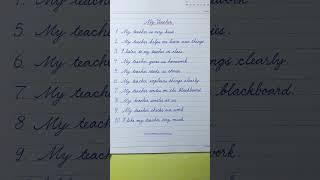 My Teacher
1. My teacher is very kind.
2. My teacher helps me learn new things.
3. I listen to my teacher in class.
4. My teacher gives us homework.
5. My teacher reads us stories.
6. My teacher explains things clearly.
7. My teacher writes on the blackboard.
8. My teacher smiles at us.
9. My teacher checks our work.
10. I like my teacher very much.